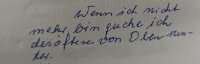 Wenn ich nicht
mehr bin gucke ich
desöfteren von Oben run-
ter.